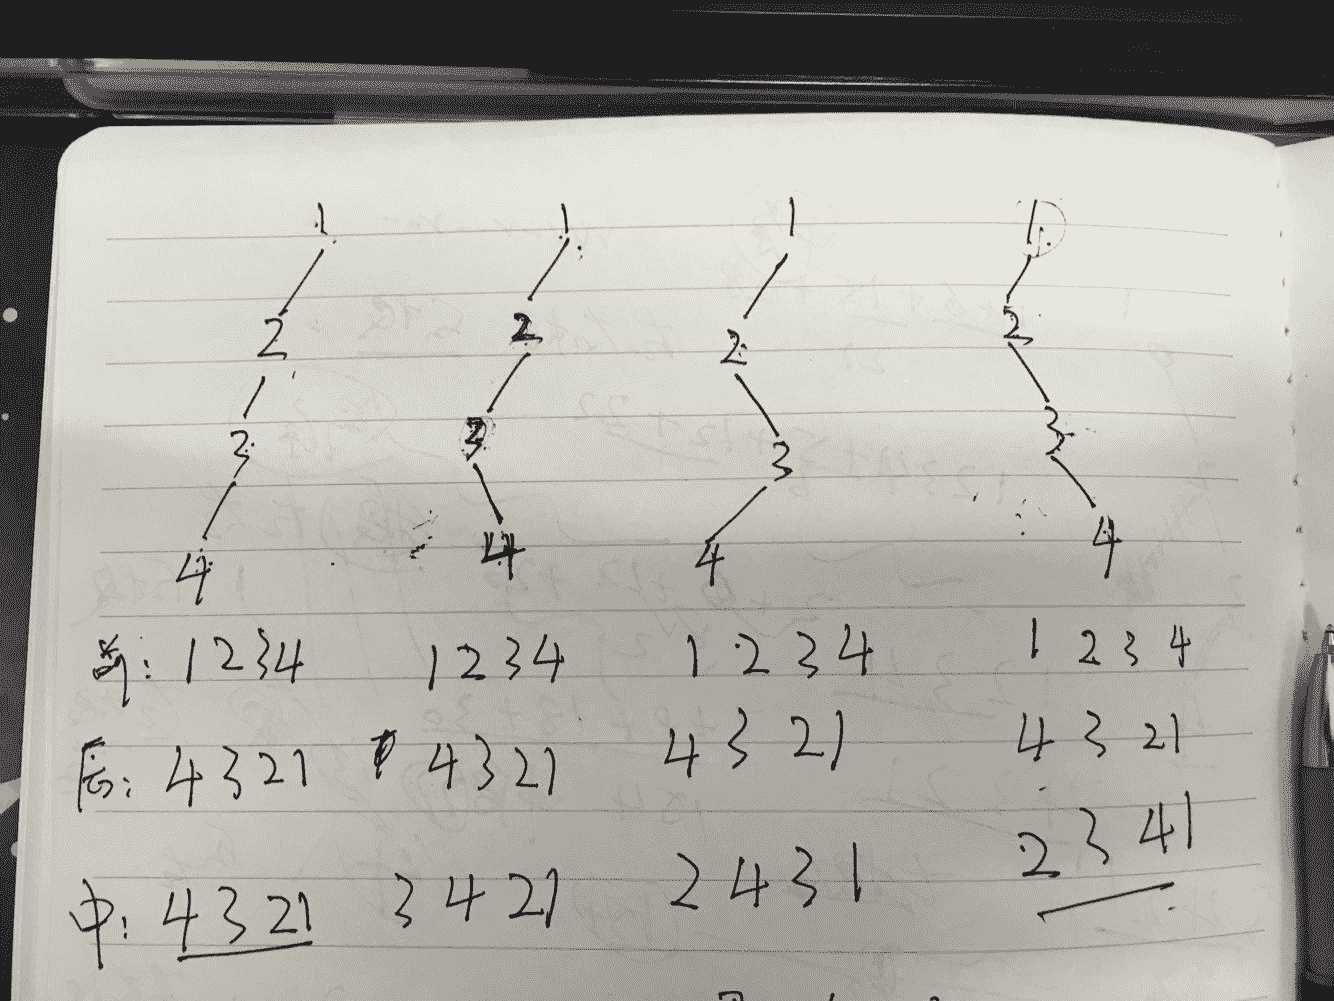 1 1 1 1
2 2 2 2
3 3 3 3
4 4 4 4
前: 1234 1234 1 2 3 4 1 2 3 4
后: 4321 4321 4 3 21 4 3 21
中: 4321 3421 2 4 3 1 2 3 41